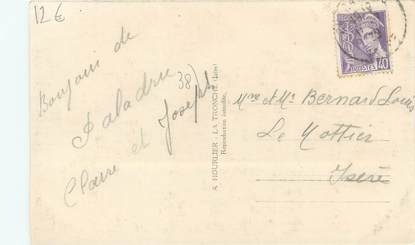 12€
Bonjour de
Paladru
38)
Claire et Joseph
A. HOURLIER - LA TRONCHE (Isère)
Reproduction interdite
Mme et Mr Bernard Louis
Le Mottier
Isère
POSTES 40